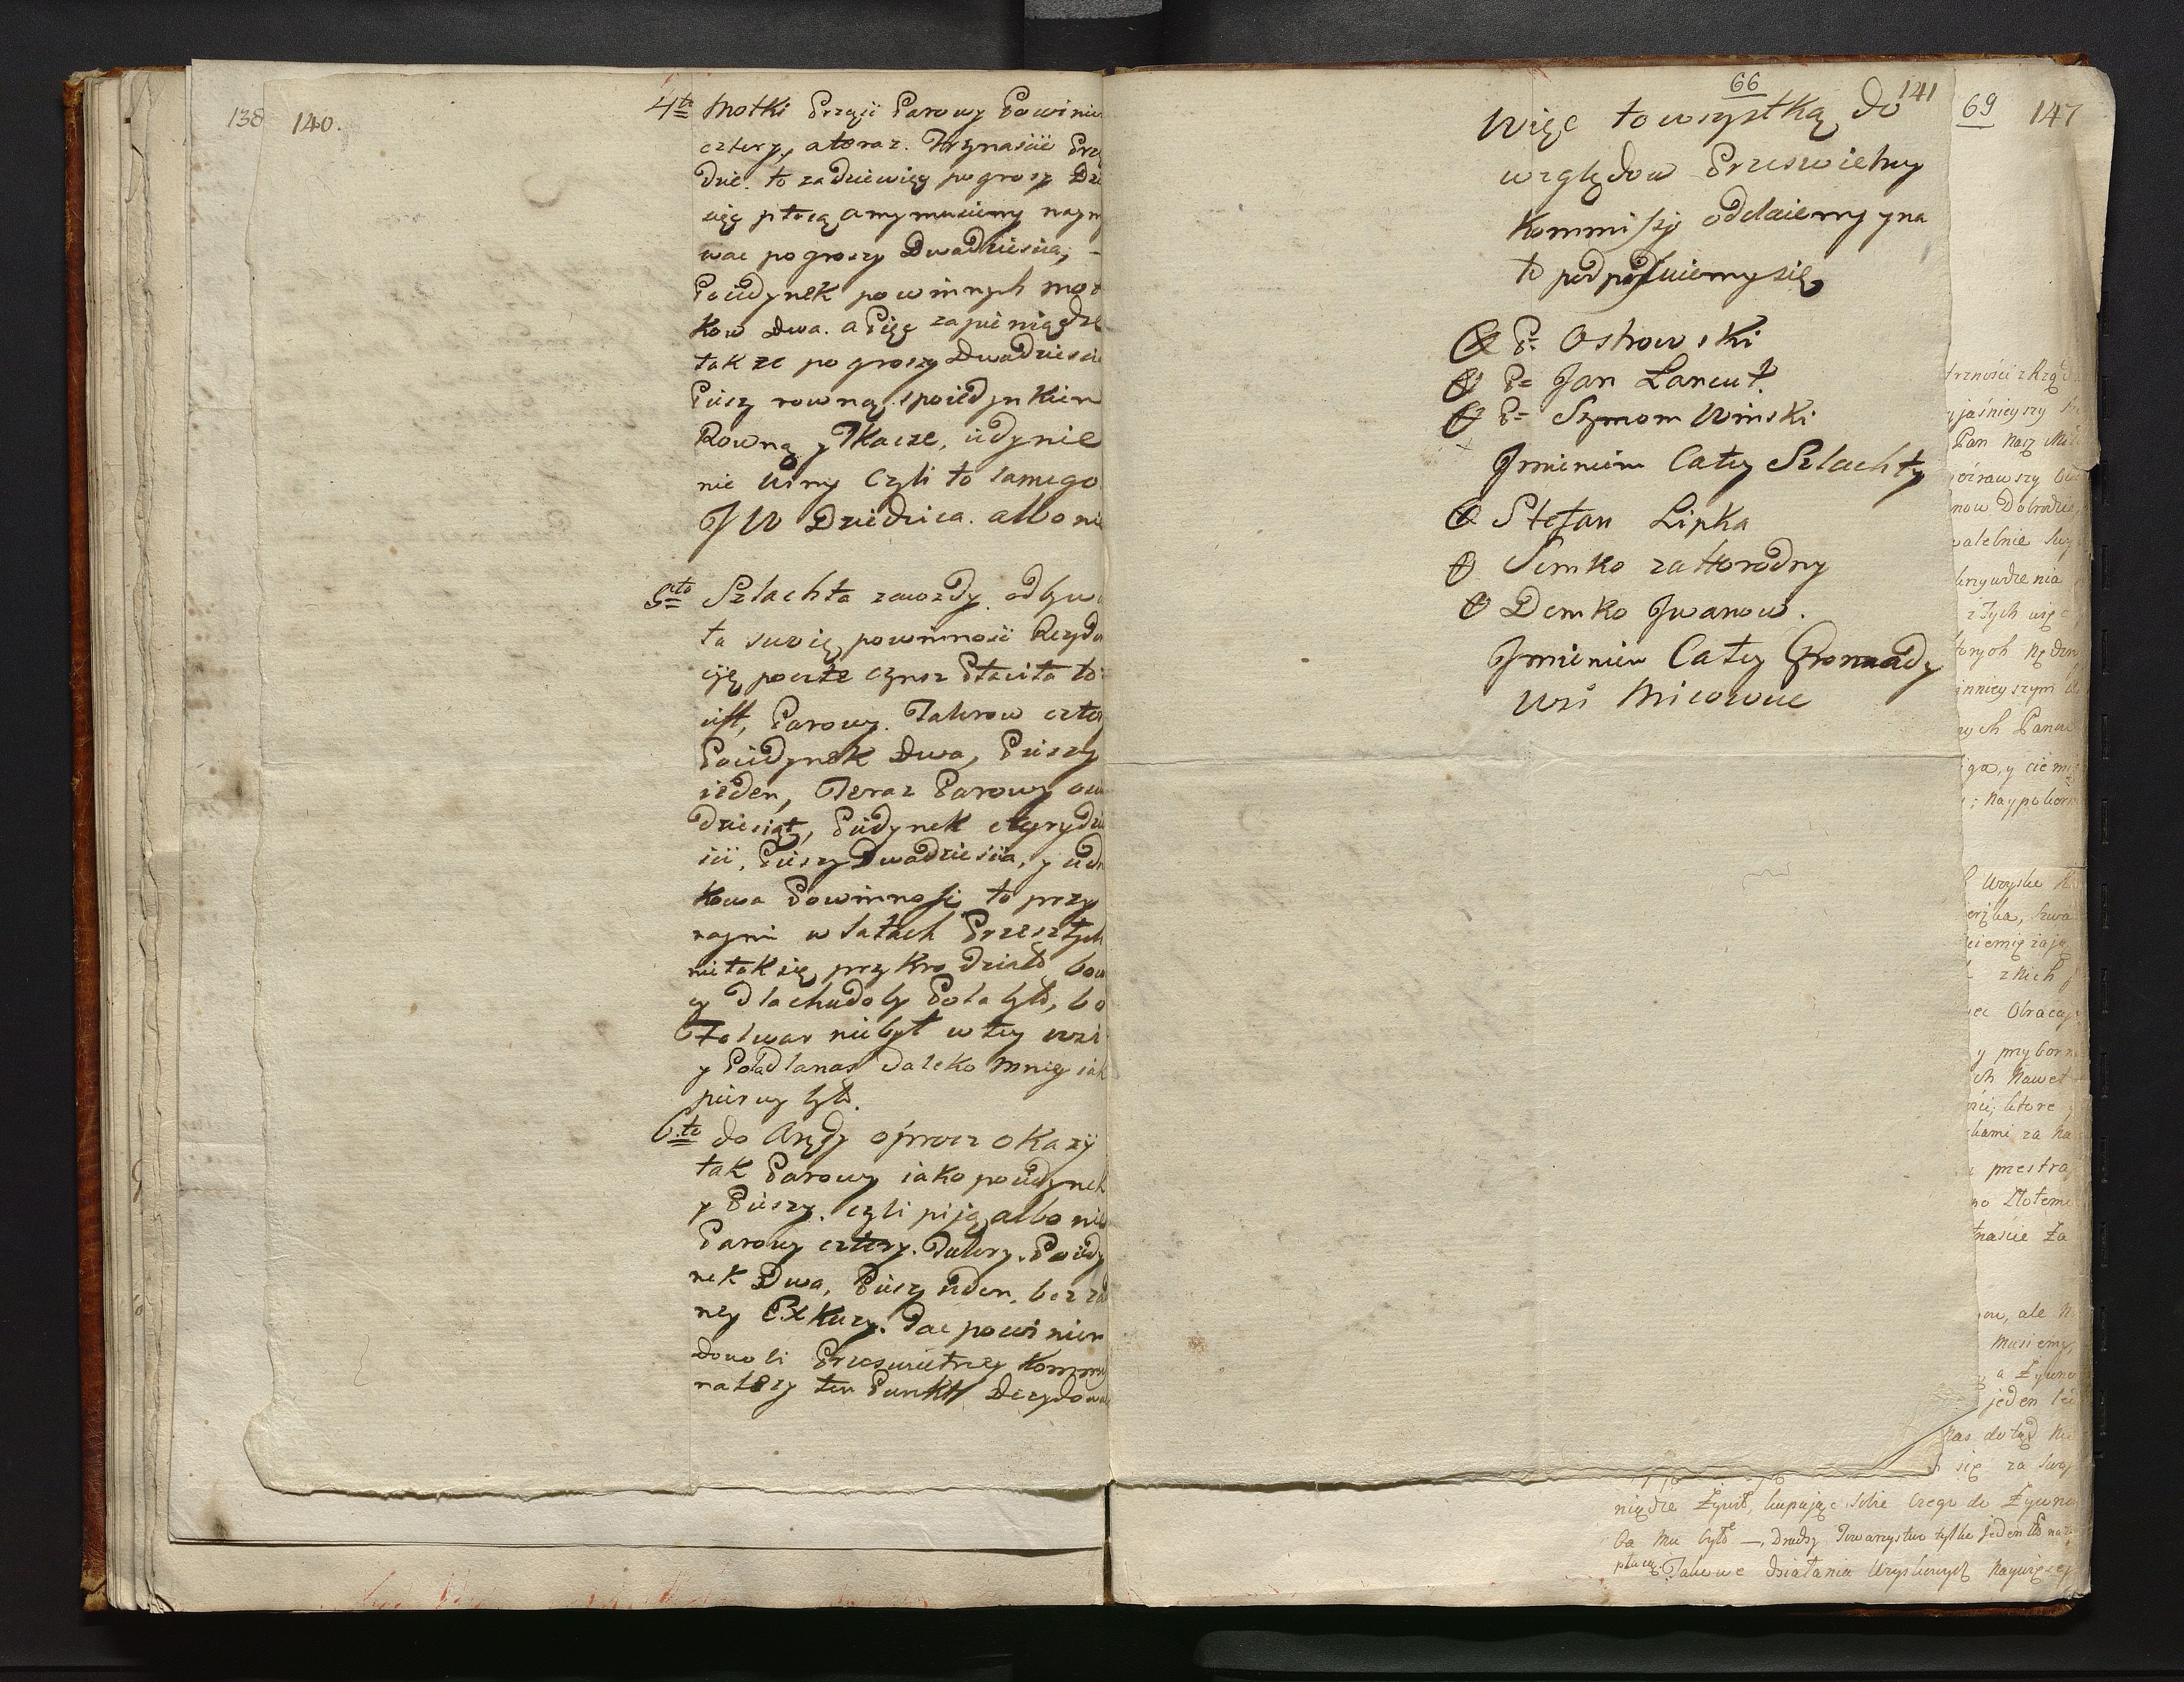 138
140.
4to Motki Przęji Parowy Powinien
cztery, a teraz. Trzynaście Prz
dzie. to za dziewięy po groszy Dzi
sięę płacą a my musiemy naym
wac po groszy Dwadziescia, –
Poiedynek powinnych mot
kow Dwa. a Pięę za pieniądze
takze po groszy Dwadziescia
Pieszy rowną, s poiedynkiem
Rowną y Tkacze, iedynie
nie wimy Czyli to samego
JW Dziedzica. albo nie
5to Szlachta zawzdy odbywa
ta swoię powinnosci Rezyden
cyę poczte czynsz Płaciła to
iest, Parowy. Talerow cztery
Poiedynek Dwa, Pieszy
ieden, Teraz Parowy osm
dziesiąt, Poiedynek cztyrydzie
sci, Pieszy Dwadziescia, y iedn
kowa Powinnosc, to przy
naymi w latach Przeszłych
nie tak się przykro działo bow
y dla chudoby Pola było, bo
Folwar niebył w tey wsi
y Pola dla nas daleko mniey iak
pierwy było.
6.to do Aręndy oprocz okazyi
tak Parowy iako poiedynek
y Pieszy. czyli piją albo nie
Parowy cztery. Talery. Poiedy
nek Dwa, Pieszy ieden. bez za
ney Exkuzy. Dac powinien
dowoli Przeswietney Kommi
nalezy ten Punkt Decydowac
66
141
Więc to wszystką do
względow Przeswietney
Kommissyi oddaiemy y na
to podpisuiemy się
P= Ostrowski
P= Jan Lancut
P= Szymom Winski
Jmieniem Całey Szlachty
Stefan Lipka
Semko zaHorodny
Demko Jwanow.
Jmieniem Całey Gromady
wsi Micowue
69
147
trzności z Rzą
yjaśnieyszy
Pan Nasz Mi
now Dobrodzie
z Tych więc
nnieyszym
ych Panow
ga, y ciemię
; Naypokorn
Uryske
emięzają
z Nich
ec Obracay
y przyborn
ch Nawet
ści, ktore
kami za Na
przestra
no Złotem
naście Za
ow, ale N
Musiemy,
a Żywno
jeden
Nas dotąd Nie
się za Swoj
niądze Żywił, kupując Sobie Czego do Żywno
ba Mu było —. Drudzy Towarzystwo tylko Jeden
płacą. Takowe działania Uryskowych Naywięcey